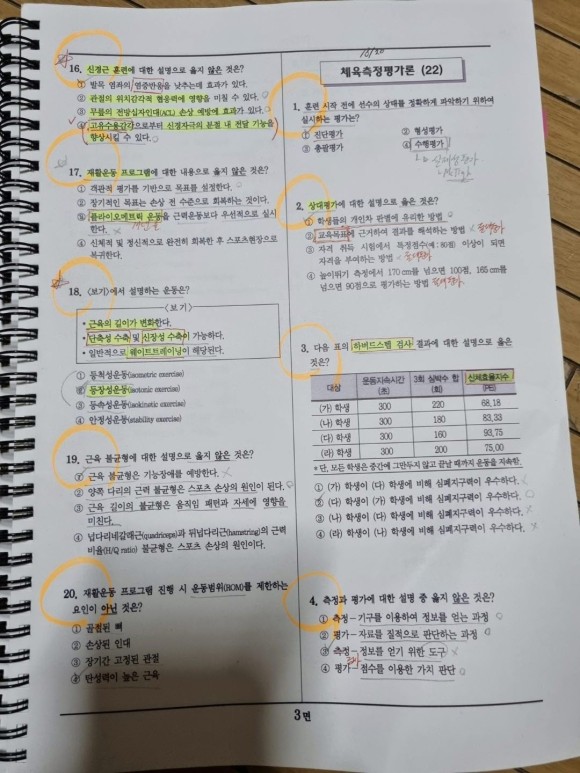 16. 신경근 훈련에 대한 설명으로 옳지 않은 것은?
① 발목 염좌의 염증반응을 낮추는데 효과가 있다.
② 관절의 위치감각적 협응력에 영향을 미칠 수 있다.
③ 무릎의 전방십자인대(ACL) 손상 예방에 효과가 있다.
④ 고유수용감각으로부터 신경자극의 분절 내 전달 기능을
향상시킬 수 있다.
17. 재활운동 프로그램에 대한 내용으로 옳지 않은 것은?
① 객관적 평가를 기반으로 목표를 설정한다.
② 장기적인 목표는 손상 전 수준으로 회복하는 것이다.
③ 플라이오메트릭 운동을 근력운동보다 우선적으로 실시
한다.
④ 신체적 및 정신적으로 완전히 회복한 후 스포츠현장으로
복귀한다.
18. <보기>에서 설명하는 운동은?
<보기>
• 근육의 길이가 변화한다.
• 단축성 수축 및 신장성 수축이 가능하다.
• 일반적으로 웨이트트레이닝이 해당된다.
① 등척성운동(isometric exercise)
② 등장성운동(isotonic exercise)
③ 등속성운동(isokinetic exercise)
④ 안정성운동(stability exercise)
19. 근육 불균형에 대한 설명으로 옳지 않은 것은?
① 근육 불균형은 기능장애를 예방한다.
② 양쪽 다리의 근력 불균형은 스포츠 손상의 원인이 된다.
③ 근육 길이의 불균형은 움직임 패턴과 자세에 영향을
미친다.
④ 넙다리네갈래근(quadriceps)과 뒤넙다리근(hamstring)의 근력
비율(H/Q ratio) 불균형은 스포츠 손상의 원인이다.
20. 재활운동 프로그램 진행 시 운동범위(ROM)를 제한하는
요인이 아닌 것은?
① 골절된 뼈
② 손상된 인대
③ 장기간 고정된 관절
④ 탄성력이 높은 근육
체육측정평가론 (22)
1. 훈련 시작 전에 선수의 상태를 정확하게 파악하기 위하여
실시하는 평가는?
① 진단평가 ② 형성평가
③ 총괄평가 ④ 수행평가
2. 상대평가에 대한 설명으로 옳은 것은?
① 학생들의 개인차 판별에 유리한 방법
② 교육목표에 근거하여 결과를 해석하는 방법
③ 자격 취득 시험에서 특정점수(예: 80점) 이상이 되면
자격을 부여하는 방법
④ 높이뛰기 측정에서 170 cm를 넘으면 100점, 165 cm를
넘으면 90점으로 평가하는 방법
3. 다음 표의 하버드스텝 검사 결과에 대한 설명으로 옳은
것은?
대상 운동지속시간(초) 3회 심박수 합(회) 신체효율지수(PEI)
(가) 학생 300 220 68.18
(나) 학생 300 180 83.33
(다) 학생 300 160 93.75
(라) 학생 300 200 75.00
* 단, 모든 학생은 중간에 그만두지 않고 끝날 때까지 운동을 지속함.
① (가) 학생이 (다) 학생에 비해 심폐지구력이 우수하다.
② (다) 학생이 (가) 학생에 비해 심폐지구력이 우수하다.
③ (나) 학생이 (다) 학생에 비해 심폐지구력이 우수하다.
④ (라) 학생이 (나) 학생에 비해 심폐지구력이 우수하다.
4. 측정과 평가에 대한 설명 중 옳지 않은 것은?
① 측정 – 기구를 이용하여 정보를 얻는 과정
② 평가 – 자료를 질적으로 판단하는 과정
③ 측정 – 정보를 얻기 위한 도구
④ 평가 – 점수를 이용한 가치 판단
3면